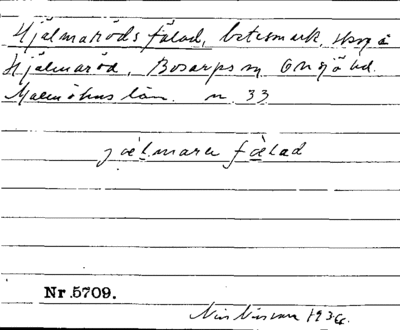 Hjälmaröds fälad, betesmark, skog å
Hjälmaröd, Bosarps sn Onsjö hd.
Malmöhus län. nr. 33
jælmara fælad
Nr 5709.
Nils Nilsson 193